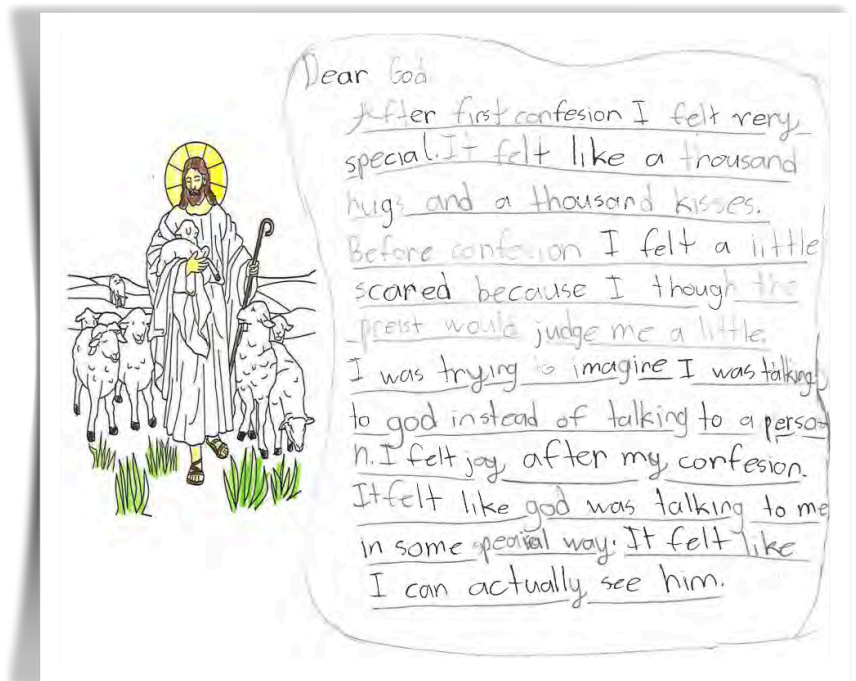 Dear God
After first confesion I felt very
special. It felt like a thousand
hugs and a thousand kisses.
Before confesion I felt a little
scared because I though the
preist would judge me a little.
I was trying to imagine I was talking
to god instead of talking to a perso
n. I felt joy after my confesion.
It felt like god was talking to me
in some way. It felt like
I can actually see him.